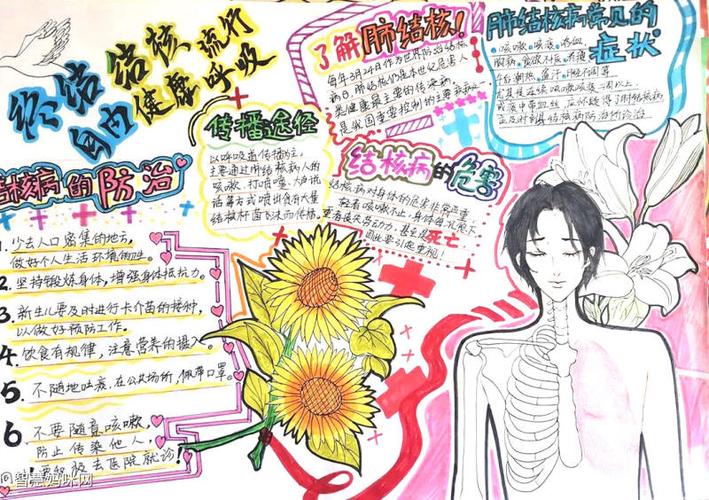 终结 结核 流行
自由 健康 呼吸
了解肺结核!
每年3月24日作为世界防治结核
病日 肺结核病是本世纪危害人
类健康最主要的传染病,
是我国重要控制的主要疾病之
肺结核病常见的
症状
咳嗽、咳痰、咳血、
胸痛、食欲不振、
午后潮热、盗汗、
咳嗽咳痰2周以上
或痰中带血丝,应怀疑得了肺结核病
应及时到结核病防治所诊治。
传播途径
以呼吸道传播为主,
主要通过肺结核病人的
咳嗽、打喷嚏、大声说
话等方式喷出含有大量
结核杆菌飞沫而传播。
结核病的危害
结核病对身体的危害非常严重
轻者咳嗽不止,身体
丧失劳动力,甚至是死亡
因此要引起重视!
结核病的防治
1. 少去人口密集的地方,
做好个人生活环境的卫生。
2. 坚持锻炼身体,增强身体抵抗力。
3. 新生儿要及时进行卡介苗的接种,
以做好预防工作。
4. 饮食有规律,注意营养的摄入。
5. 不随地吐痰、在公共场所,佩带口罩。
6 不要随意咳嗽,
防止传染他人,
要积极去医院就诊!
@智慧妈咪网